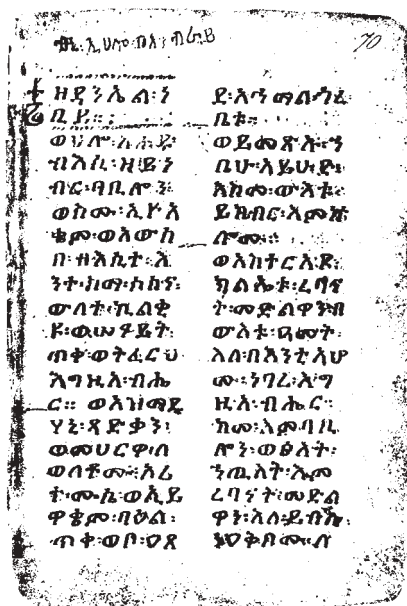 70
ዘዳንኤል፡ነ
ቢይ።
ወሀሎ፡አሐዱ
ብእሲ፡ዘይነ
ብር፡ባቢሎን፡
ወስሙ፡ኢዮአ
ቄም፡ወአውሰ
በ፡ብእሲተ፡እ
ንተ፡ስማ፡ሶስና፡
ወለተ፡ኬልቂ
ዩ፡ወሠናይት፡
ጥቀ፡ወትፈርህ
እግዚአ፡ብሔ
ር። ወአዝማዲ
ሃኒ፡ጻድቃን፡
ወመሀርዋ፡ለ
ወለቶሙ፡ኦሪ
ተ፡ሙሴ፡ወኢዮ
ዋቄም፡ባዕል፡
ጥቀ፡ወቦ፡ዐጸ
ቤቱ።
ወይመጽኡ፡ኀ
ቤሁ፡አይሁድ፡
እስመ፡ውእቱ፡
ይከብር፡እምኵ
ሎሙ።
ወአስተርአዩ፡
ክልኤቱ፡ረበና
ት፡መድልዋን፡በ
ውእቱ፡ዓመት፡
እለ፡በእንቲአሆ
ሙ፡ነገረ፡እግ
ዚአ፡ብሔር፡
ከመ፡እምባቢ
ሎን፡ወፅአት፡
ኀጢአት፡እመ
ረበናት፡መድል
ዋን፡እለ፡ይብሉ፡
ነዐቅቦሙ፡ለ